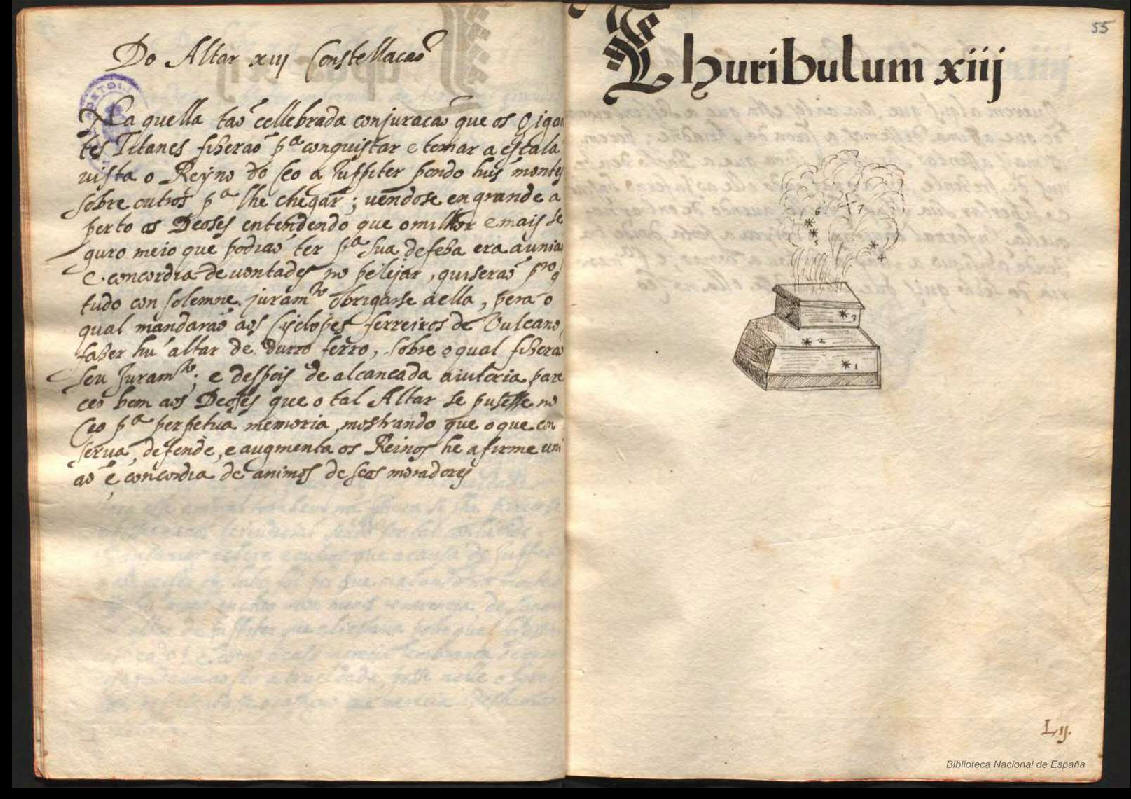 Do Altar xiij Constellacaõ
Na quella taõ cellebrada conjuracaõ que os Gigan
tes Titanes fizeraõ pª conquistar e tomar a escala
vista o Reyno do Ceo a Juppiter pondo hus montes
sobre outros pª lhe chegar; vendose en grande a
perto os Deoses entendendo que o milhor e mais se
guro meio que podiaõ ter pª sua defesa era a uniaõ
e concordia de vontades no pelejar, quiseraõ prº q
tudo con solemne juramto obrigarse a ella, pera o
qual mandaraõ aos Cyclopes ferreiros de Vulcano
fazer hu altar de durro ferro, sobre o qual fizeraõ
seu Juramto; e despois de alcancada a victoria pare
ceo bem aos Deoses que o tal Altar se pusesse no
Ceo pª perpetua memoria, mostrando que o que con
serva, defende, e augmenta os Reinos he a firme uni
aõ e concordia de animos de seos moradores
55
Thuribulum xiij
Lij.
Biblioteca Nacional de España